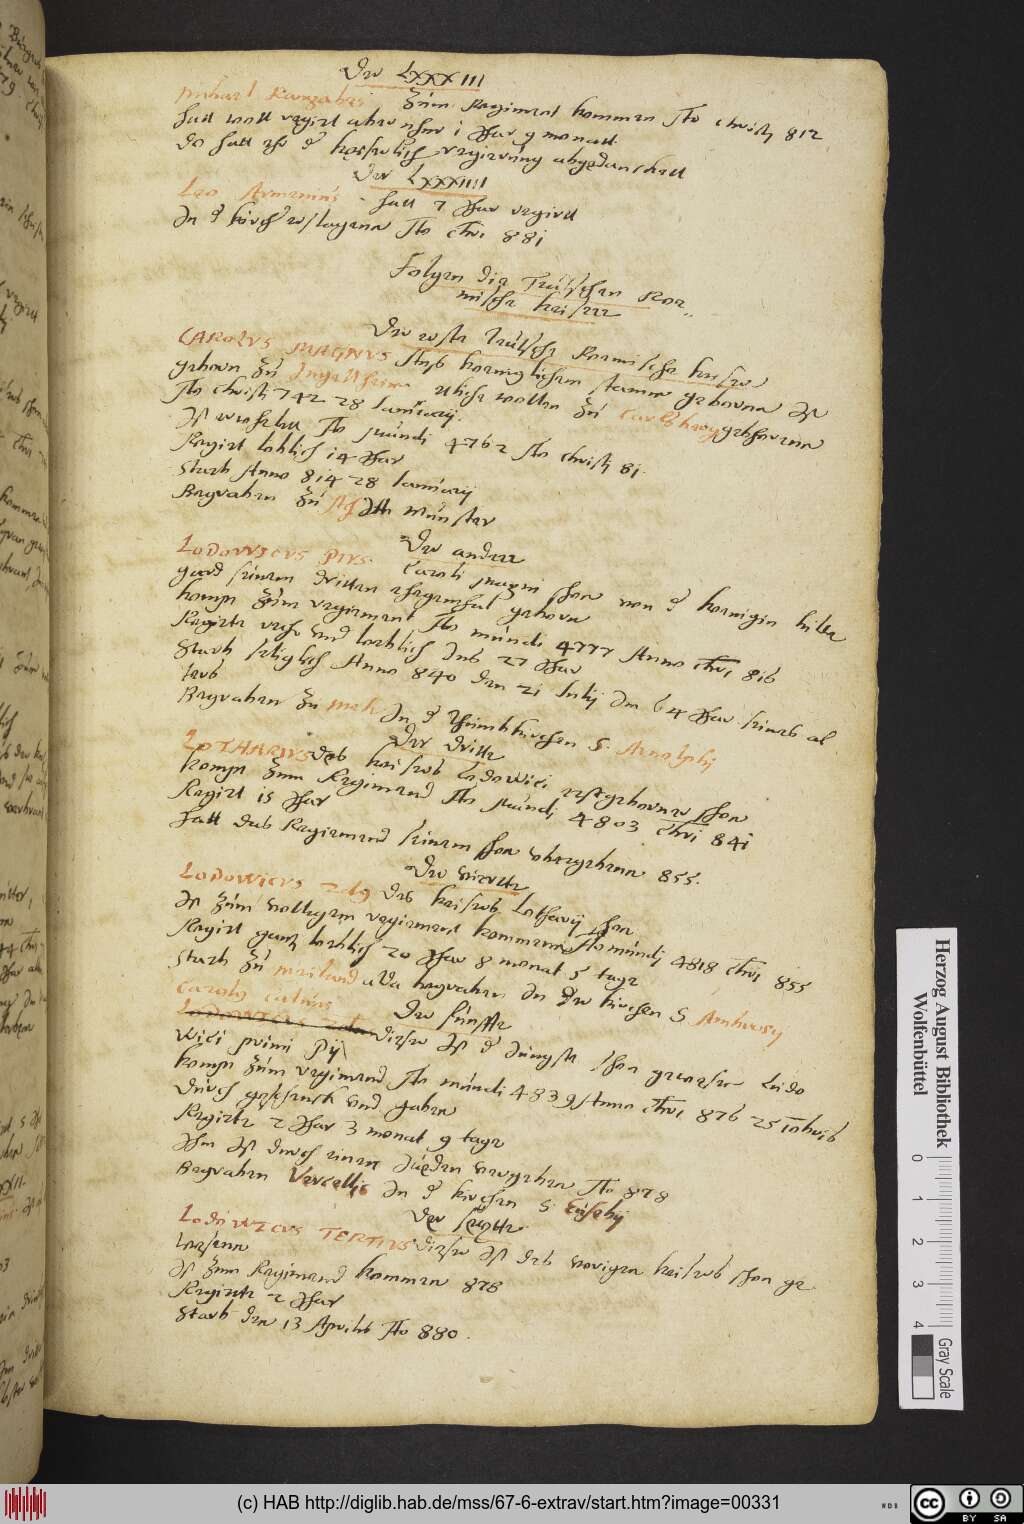 Der LXXXIII
Michael Kuropales zúm Regiment kommen Ao christj 812
hatt woll regirt aber nhur 1 Jhar 9 monatt
do hatt ehr d keyserlich regierúng abgedanckett
Der LXXXIIII
Leo Armenius hatt 7 Jhar regirtt
In d kirch erslagenn Ao chri 881
Folgen die Teútschen Roe„
mische keiserr
Der erste teútsche Roemische keiser
CAROLVS MAGNVS Auß koeniglichem stamm gebornn Ist
geborn zú Ingellheim etliche wollen zú Carlsberg geboren
Ao christj 742 28 Januarij
Ist erwehlett Ao múndi 4762 Ao christj 81
Regirt loblich 14 Jhar
Starb Anno 814 28 Januarij
Begraben zú Ach Im múnster
Der anderr
LODOVVICVS PIVS Caroli magni shon von d koenigin hilde
gard seinem dritten ehegemhal geborn
kompt zúm regiement Ao múndi 4777 Anno chri 816
Regirte recht vnd loeblich Ins 27 Jhar
Starb seliglich Anno 840 den 21 Julij Im 64 Jhar seines al
ters
Begraben zu Metz In d thúmbkirchen S. Arnolphj
Der dritte
LOTHARIVS deß keisers Lodowici erstgeborner shon
kompt zum Regimend Ao múndj 4803 Chri 841
Regirt 15 Jhar
hatt das Regiemend seinem shon vbergebenn 855.
Der vierdte
LODOWICVS 2dus des keisers Lotharij shon
Ist zúm volligem regiement kommenn Ao múndj 4818 Chri 855
Regirt gantz loeblich 20 Jhar 8 monat 5 tage
Starb zú meiland alda begraben In der kirchen S Ambrosij
Carolus calvus Der fúnffte
Dieser Ist d Júngste shon gewesen Ludo
wici primi Pij
kompt zúm regimend Ao múndi 4839 Anno Chri 876 25 10bris
dúrch geschenck vnd gaben
Regirte 2 Jhar 3 monat 9 tage
Ihm Ist dúrch einen Júeden vergeben Ao 878
Begraben Vercellis In d kirchen S Eúsebij
Der sexte
LODÚWICVS TERTIVS Dieser Ist des vorigen keisers shon ge
wesenn
Ist zum Regimend kommen 878
Regirte 2 Jhar
Starb den 13 Aprilis Ao 880.
Herzog August Bibliothek
Wolfenbüttel
0 1 2 3 4
Gray Scale
(c) HAB http://diglib.hab.de/mss/67-6-extrav/start.htm?image=00331
WDB
CC BY SA